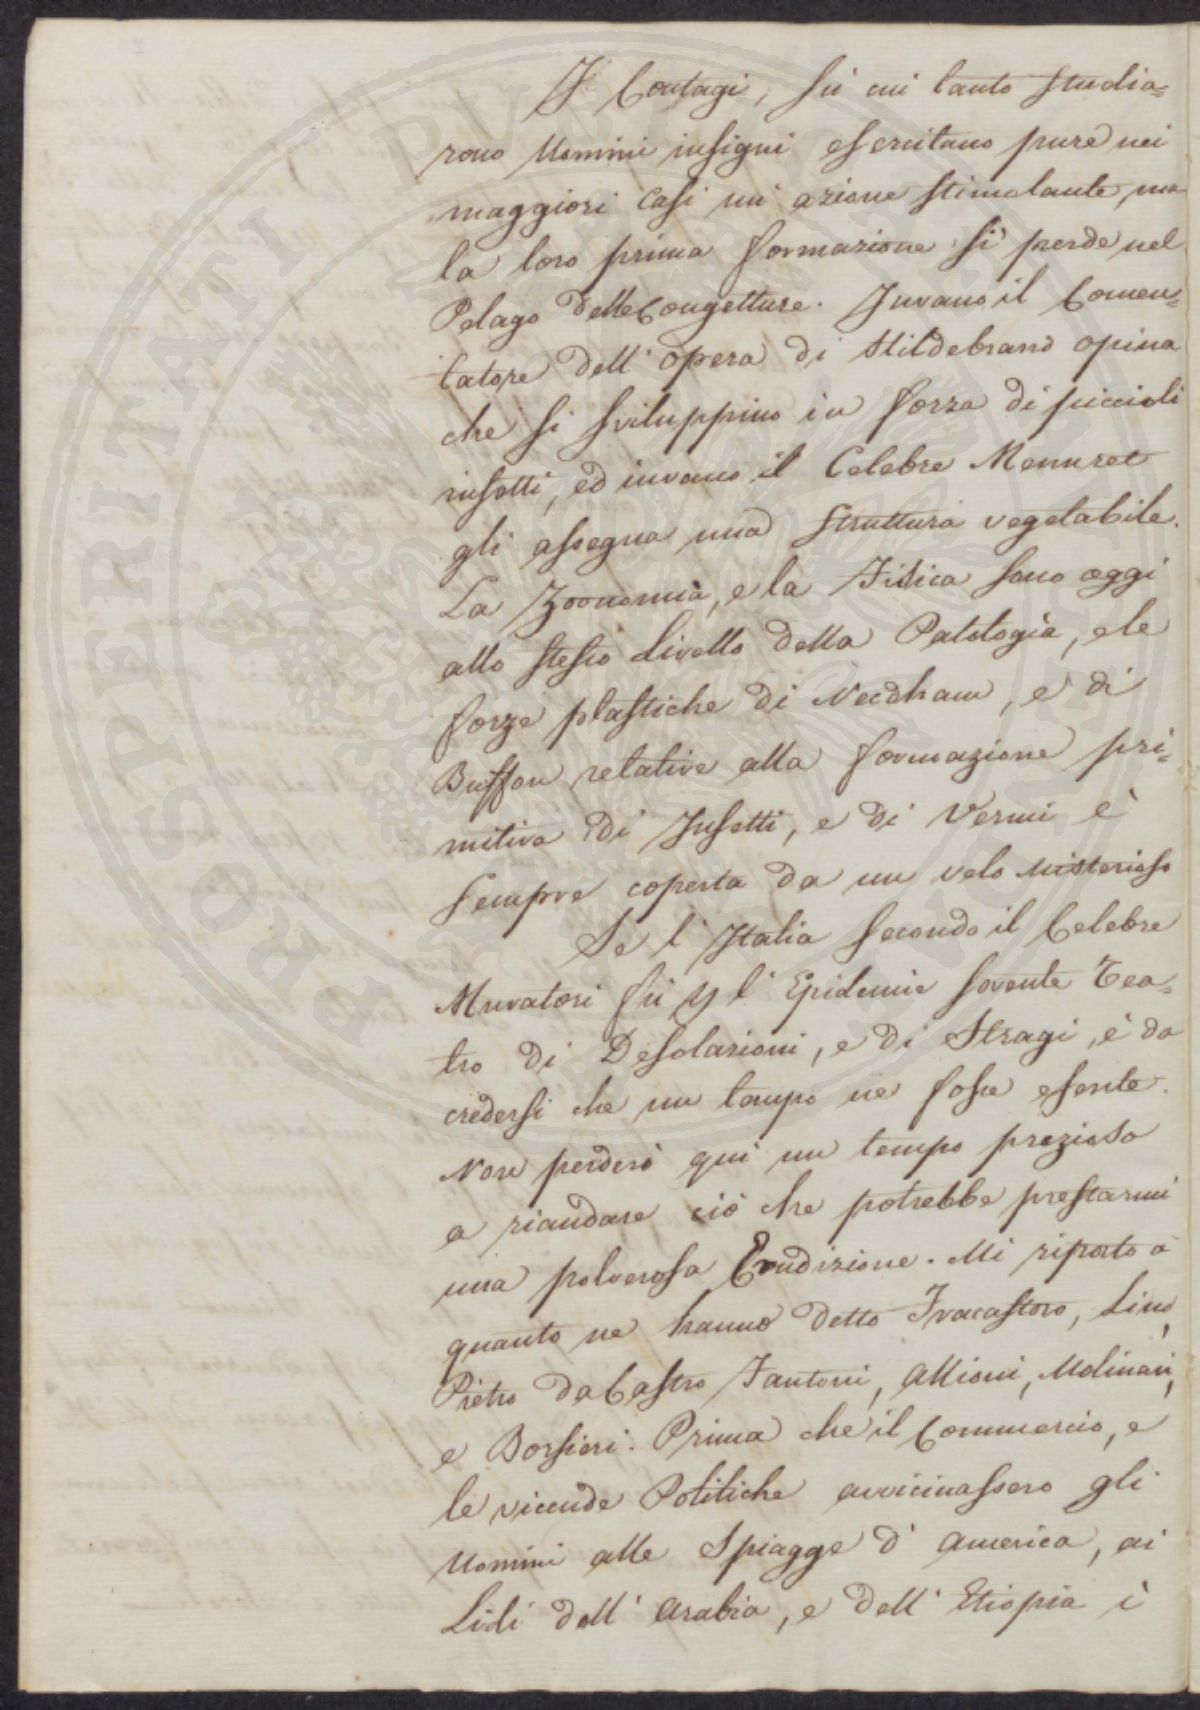 I Contagi, su cui tanto studia=
rono Uomini insigni esercitano pure nei
maggiori Casi un' azione stimolante, ma
la loro prima formazione si perde nel
Pelago delle Congetture. Invano il Comen=
tatore dell' opera di Hildebrand opina
che si sviluppino in forza di piccioli
insetti, ed invano il Celebre Menuret
gli assegna una struttura vegetabile.
La Zoonomia, e la Fisica sono oggi
allo stesso Livello della Patologia, e le
forze plastiche di Needham, e di
Buffon relative alla formazione pri=
mitiva di Insetti, e di Vermi è
sempre coperta da un velo misterioso
Se l' Italia secondo il Celebre
Muratori fù p l' Epidemie sovente Tea=
tro di Desolazioni, e di Stragi, è da
credersi che un tempo ne fosse esente.
Non perderò qui un tempo prezioso
a riandare ciò che potrebbe prestarmi
una polverosa Erudizione. Mi riporto a
quanto ne hanno detto Fracastoro, Lind,
Pietro da Castro Fantoni, Allioni, Molinari,
e Borsieri. Prima che il Commercio, e
le vicende Politiche avvicinassero gli
Uomini alle Spiagge d' America, ai
Lidi dell' Arabia, e dell' Etiopia i
PROSPERITATI PUBLICAE